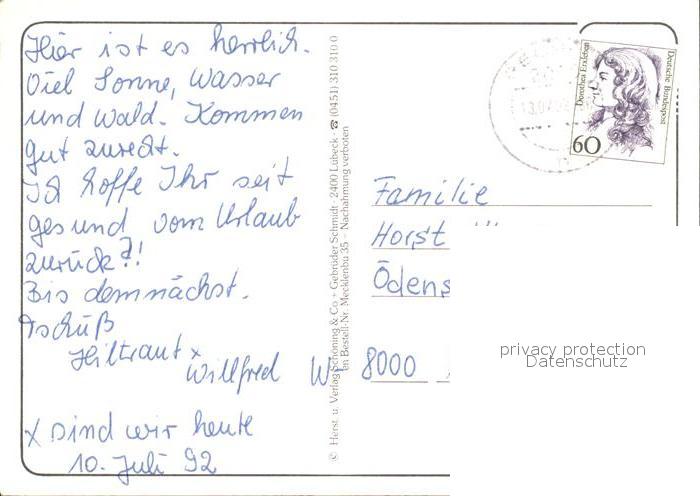 Hier ist es herrlich.
Viel Sonne, Wasser
und Wald. Kommen
gut zurecht.
Ich hoffe Ihr seit
gesund vom Urlaub
zurück?!
Bis demnächst.
Tschüß
Hiltraut x
Willfred
x sind wir heute
10. Juli 92
© Herst. u. Verlag Schöning & Co + Gebrüder Schmidt · 2400 Lübeck · ☎ (0451) 310 310 0
en Bestell-Nr. Mecklenbu 35 - Nachahmung verboten
Dorothea Erxleben
Deutsche Bundespost
60
Familie
Horst
Ödens
W- 8000
privacy protection
Datenschutz